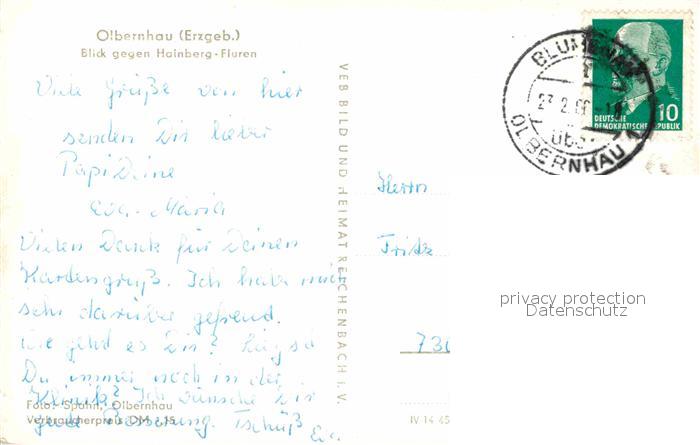 Olbernhau (Erzgeb.)
Blick gegen Hainberg-Fluren
Viele Grüße von hier
senden Dir lieber
Papi Deine
Eva-Maria
Vielen Dank für Deinen
Kartengruß. Ich habe mich
sehr darüber gefreut.
Wie geht es Dir? Liegst
Du immer noch in der
Klinik? Ich wünsche Dir
gute Besserung. Tschüß
Eva
Foto: Spahn, Olbernhau
Verbraucherpreis DM
VEB BILD UND HEIMAT REICHENBACH i. V.
IV 14 45
OLBERNHAU
DEUTSCHE
DEMOKRATISCHE REPUBLIK
10
Herrn
Fritz
730
privacy protection
Datenschutz